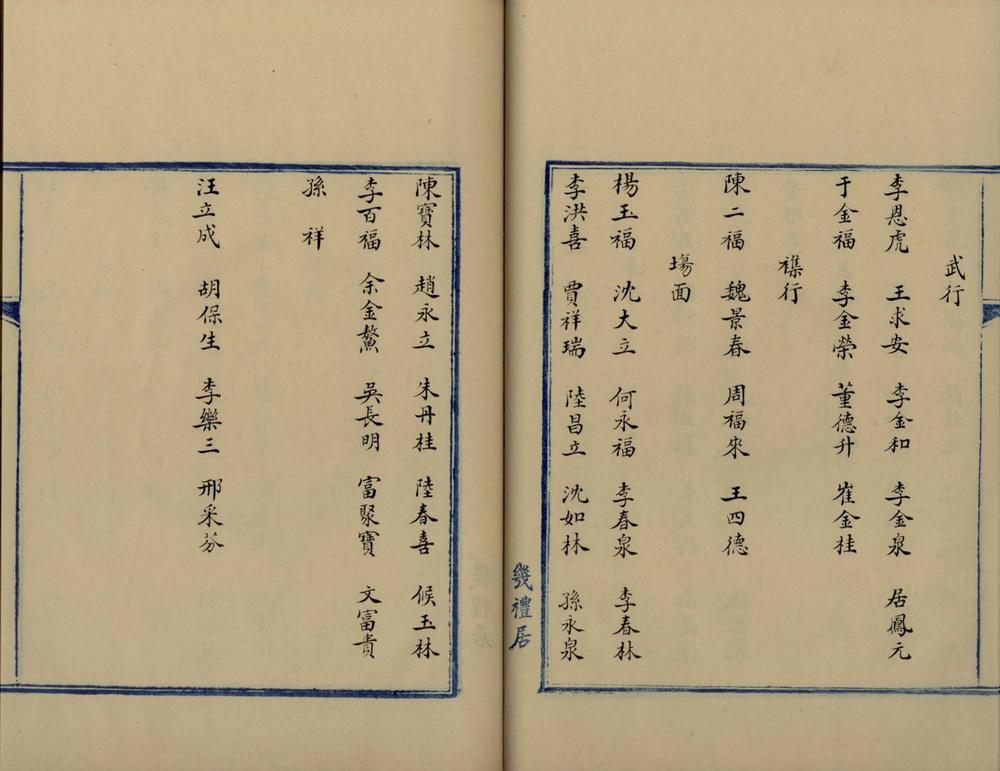 武行
李恩虎 王求安 李金和 李金泉 居鳳元
于金福 李金榮 董德升 崔金桂
襍行
陳二福 魏景春 周福來 王四德
塲面
楊玉福 沈大立 何永福 李春泉 李春林
李洪喜 賈祥瑞 陸昌立 沈如林 孫永泉
幾禮居
陳寶林 趙永立 朱丹桂 陸春喜 候玉林
李百福 余金鰲 吳長明 富聚寶 文富貴
孫祥
汪立成 胡保生 李樂三 邢采芬